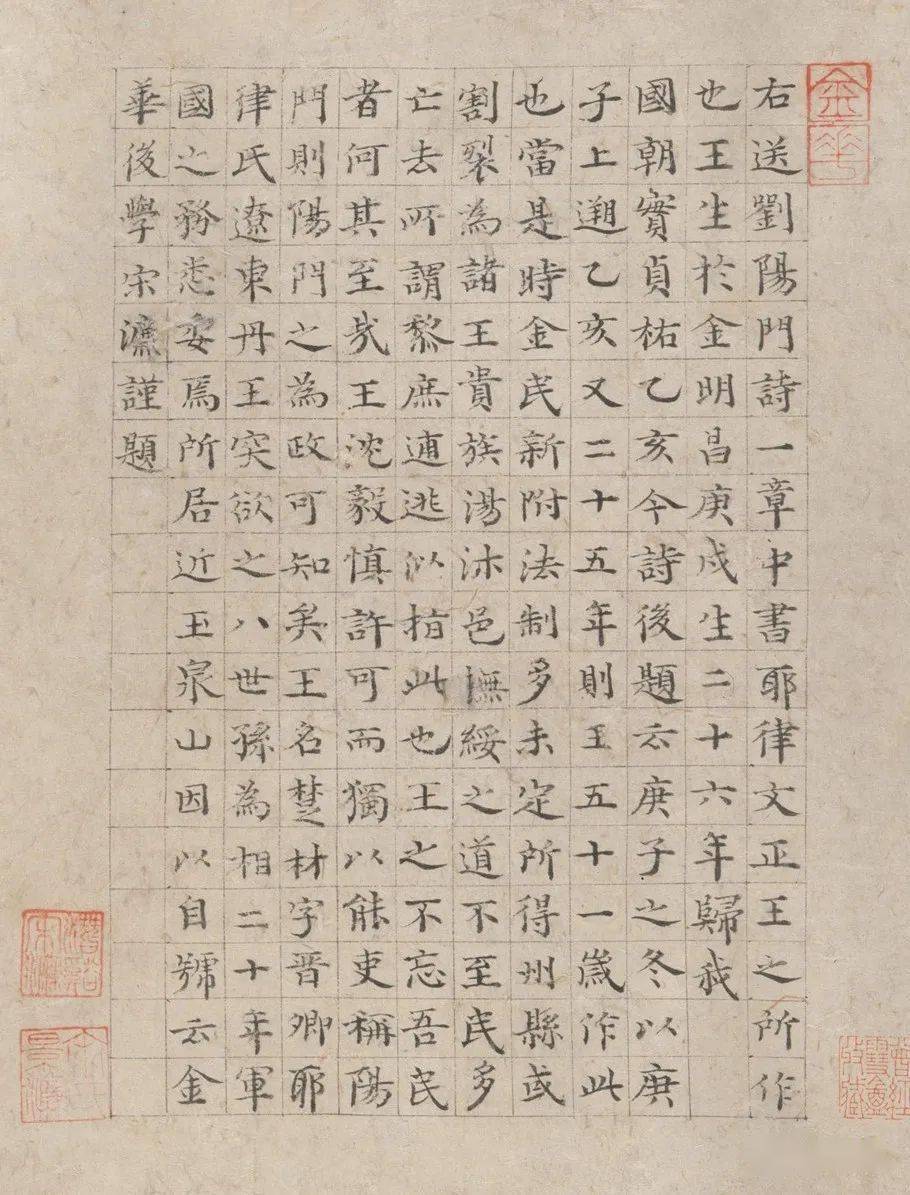 右送劉陽門詩一章中書耶律文正王之所作
也王生於金明昌庚戌生二十六年歸我
國朝實貞祐乙亥今詩後題云庚子之冬以庚
子上遡乙亥又二十五年則王五十一歲作此
也當是時金民新附法制多未定所得州縣或
割裂為諸王貴族湯沐邑撫綏之道不至民多
亡去所謂黎庶逋逃以指此也王之不忘吾民
者何其至哉王沈毅慎許可而獨以能吏稱陽
門則陽門之為政可知矣王名楚材字晋卿耶
律氏遼東丹王突欲之八世孫為相二十年軍
國之務悉委焉所居近玉泉山因以自號云金
華後學宋濂謹題
金華